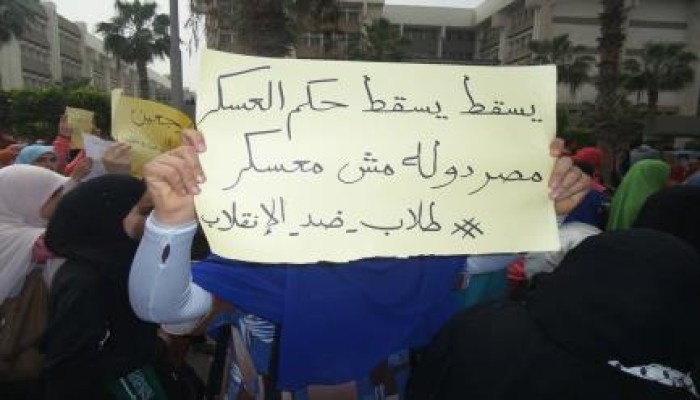 يسقط يسقط حكم العسكر
مصر دولة مش معسكر
# طلاب_ضد_الإنقلاب